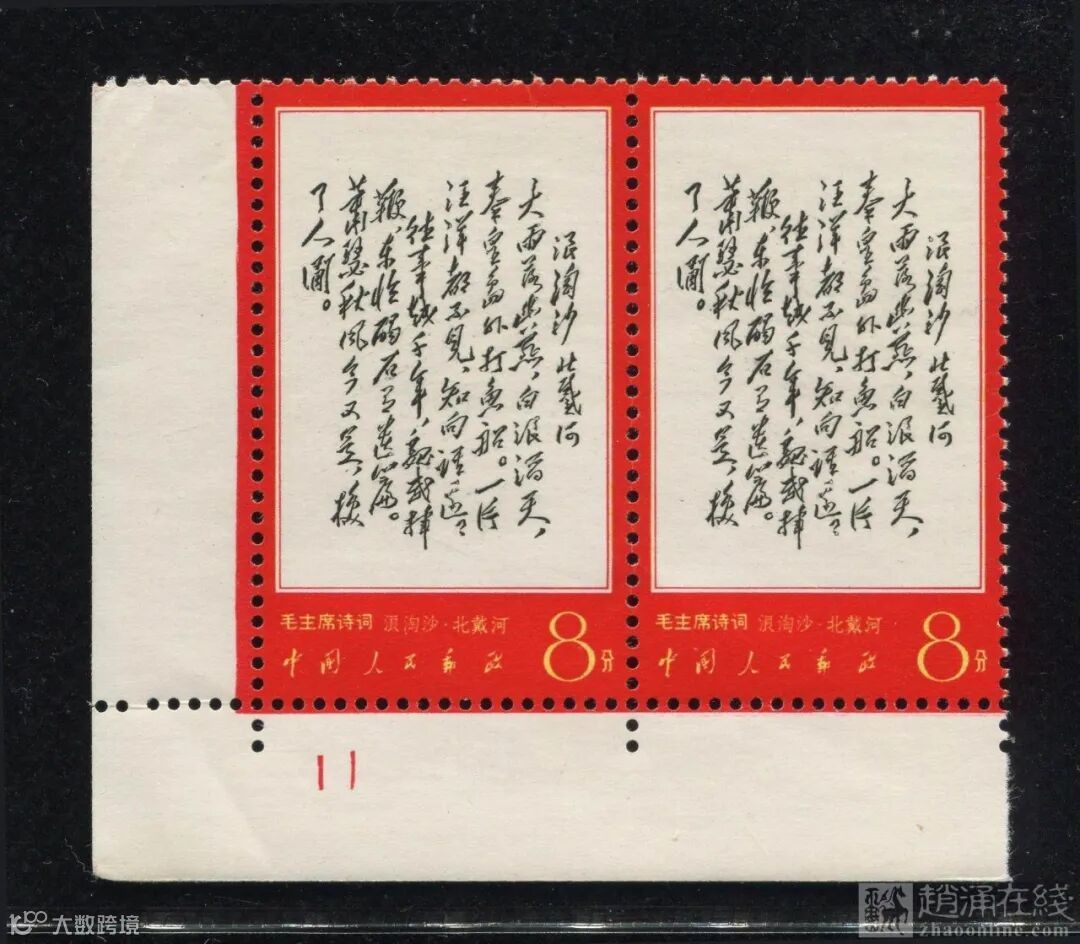 浪淘沙 北戴河
大雨落幽燕,白浪滔天,
秦皇島外打魚船。一片
汪洋都不見,知向誰邊?
往事越千年,魏武揮
鞭,東臨碣石有遺篇。
蕭瑟秋風今又是,換
了人間。
毛主席诗词 浪淘沙·北戴河
中国人民邮政
8分
浪淘沙 北戴河
大雨落幽燕,白浪滔天,
秦皇島外打魚船。一片
汪洋都不見,知向誰邊?
往事越千年,魏武揮
鞭,東臨碣石有遺篇。
蕭瑟秋風今又是,換
了人間。
毛主席诗词 浪淘沙·北戴河
中国人民邮政
8分
11
大数跨境
趙涌在綫
zhaoonline.com